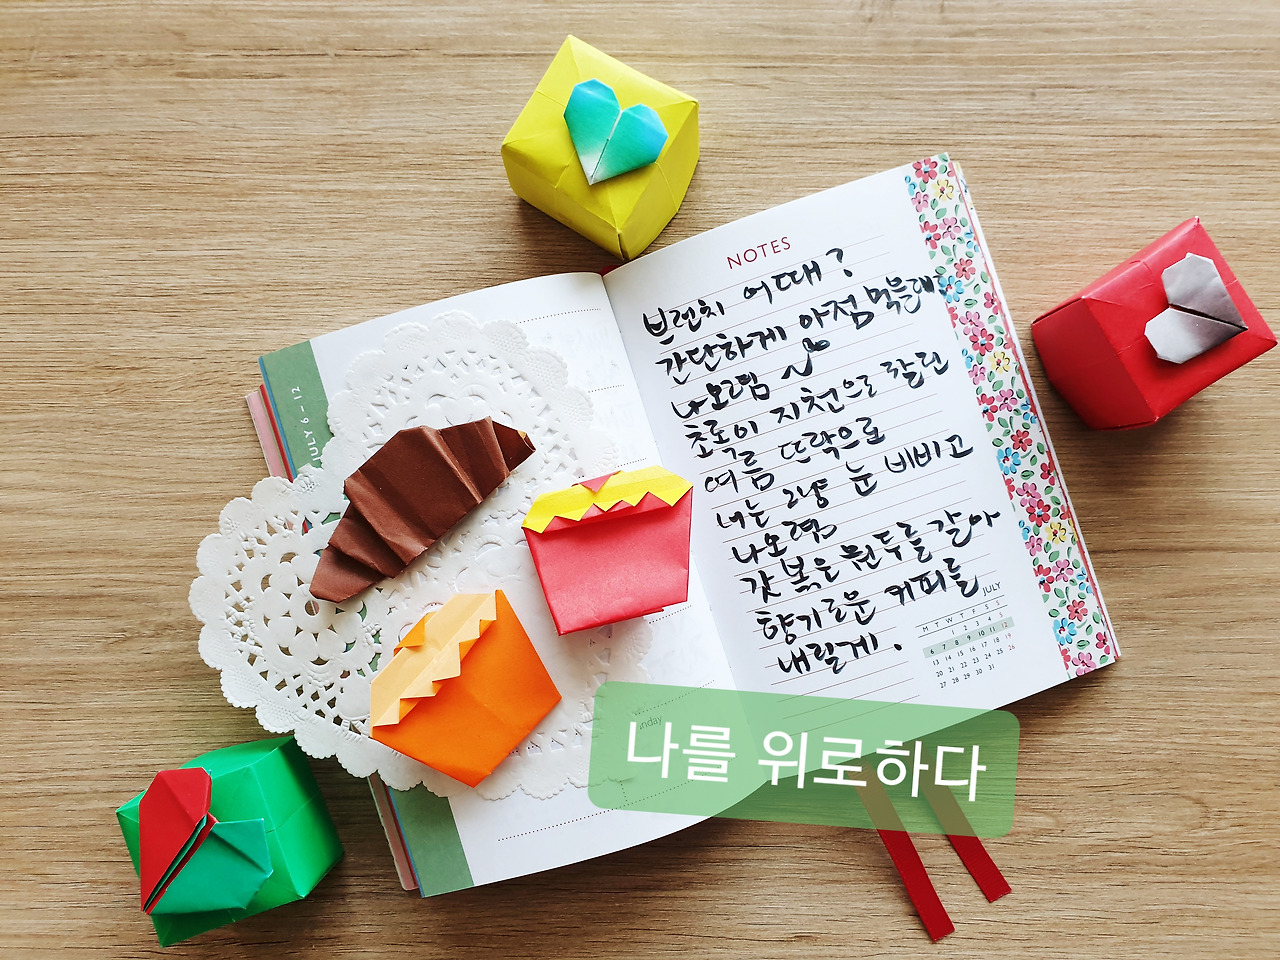 NOTES
브런치 어때?
간단하게 아점 먹을래?
나오렴
초록이 지천으로 깔린
여름 뜨락으로
너는 그냥 눈 비비고
나오렴
갓 볶은 원두를 갈아
향기로운 커피를
내릴게.
JULY
M T W T F S S
1 2 3 4 5
6 7 8 9 10 11 12
13 14 15 16 17 18 19
20 21 22 23 24 25 26
27 28 29 30 31
JULY 6 – 12
나를 위로하다